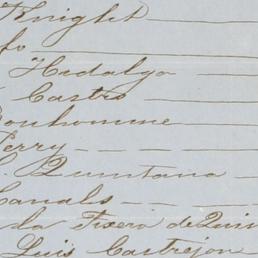 Knight
fo
Hidalgo
Castro
Bonhomme
Perry
Quintana
Canals
de la Tixera de Quin
Luis Castrejon